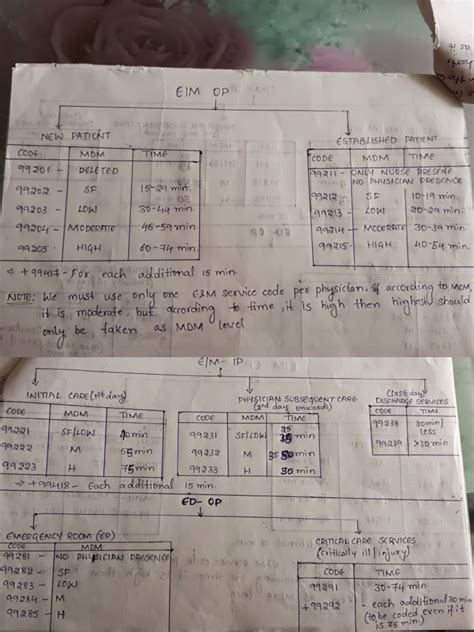 E/M OP
NEW PATIENT
CODE MDM TIME
99201 - DELETED
99202 - SF 15-29 min.
99203 - LOW 30-44 min.
99204 - MODERATE 45-59 min.
99205 - HIGH 60-74 min.
ESTABLISHED PATIENT
CODE MDM TIME
99211 - ONLY NURSE PRESENE
NO PHYSICIAN PRESENCE
99212 SF 10-19 min.
99213 - LOW 20-29 min.
99214 - MODERATE 30-39 min
99215 - HIGH 40-54 min.
⇒ +99417 - For each additional 15 min.
NOTE: We must use only one E&M service code per physician. If according to MDM,
it is moderate, but according to time, it is high then highest should
only be taken as MDM level
E/M - IP
INITIAL CARE (1st day)
CODE MDM TIME
99221 SF/LOW 40 min
99222 M 55 min
99223 H 75 min
PHYSICIAN SUBSEQUENT CARE
(2nd day onwards)
CODE MDM TIME
99231 SF/LOW 25 min
99232 M 35 min
99233 H 50 min
(last day)
DISCHARGE SERVICES
CODE TIME
99238 30min/
less
99239 >30 min
⇒ +99418 - Each additional 15 min.
ED - OP
EMERGENCY ROOM (ER)
CODE MDM
99281 - NO PHYSICIAN PRESENCE
99282 - SF
99283 - LOW
99284 - M
99285 - H
CRITICAL CARE SERVICES
(critically ill / injury)
CODE TIME
99291 30-74 min
+99292 - each additional 30 min
(to be coded even if it
is 75 min.)